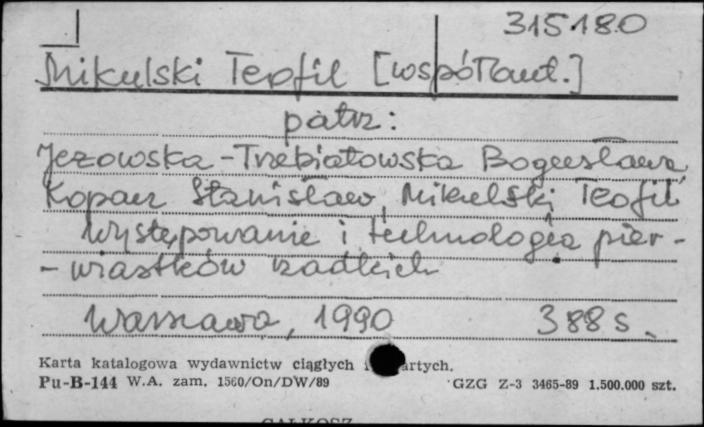 315180
Mikulski Teofil [współaut.]
patrz:
Jeżowska-Trzebiatowska Bogusława
Kopacz Stanisław, Mikulski Teofil
Występowanie i technologia pier-
-wiastków rzadkich
Warszawa, 1990 388 s.
Karta katalogowa wydawnictw ciągłych i artych.
Pu-B-144 W.A. zam. 1560/On/DW/89 GZG Z-3 3465-89 1.500.000 szt.